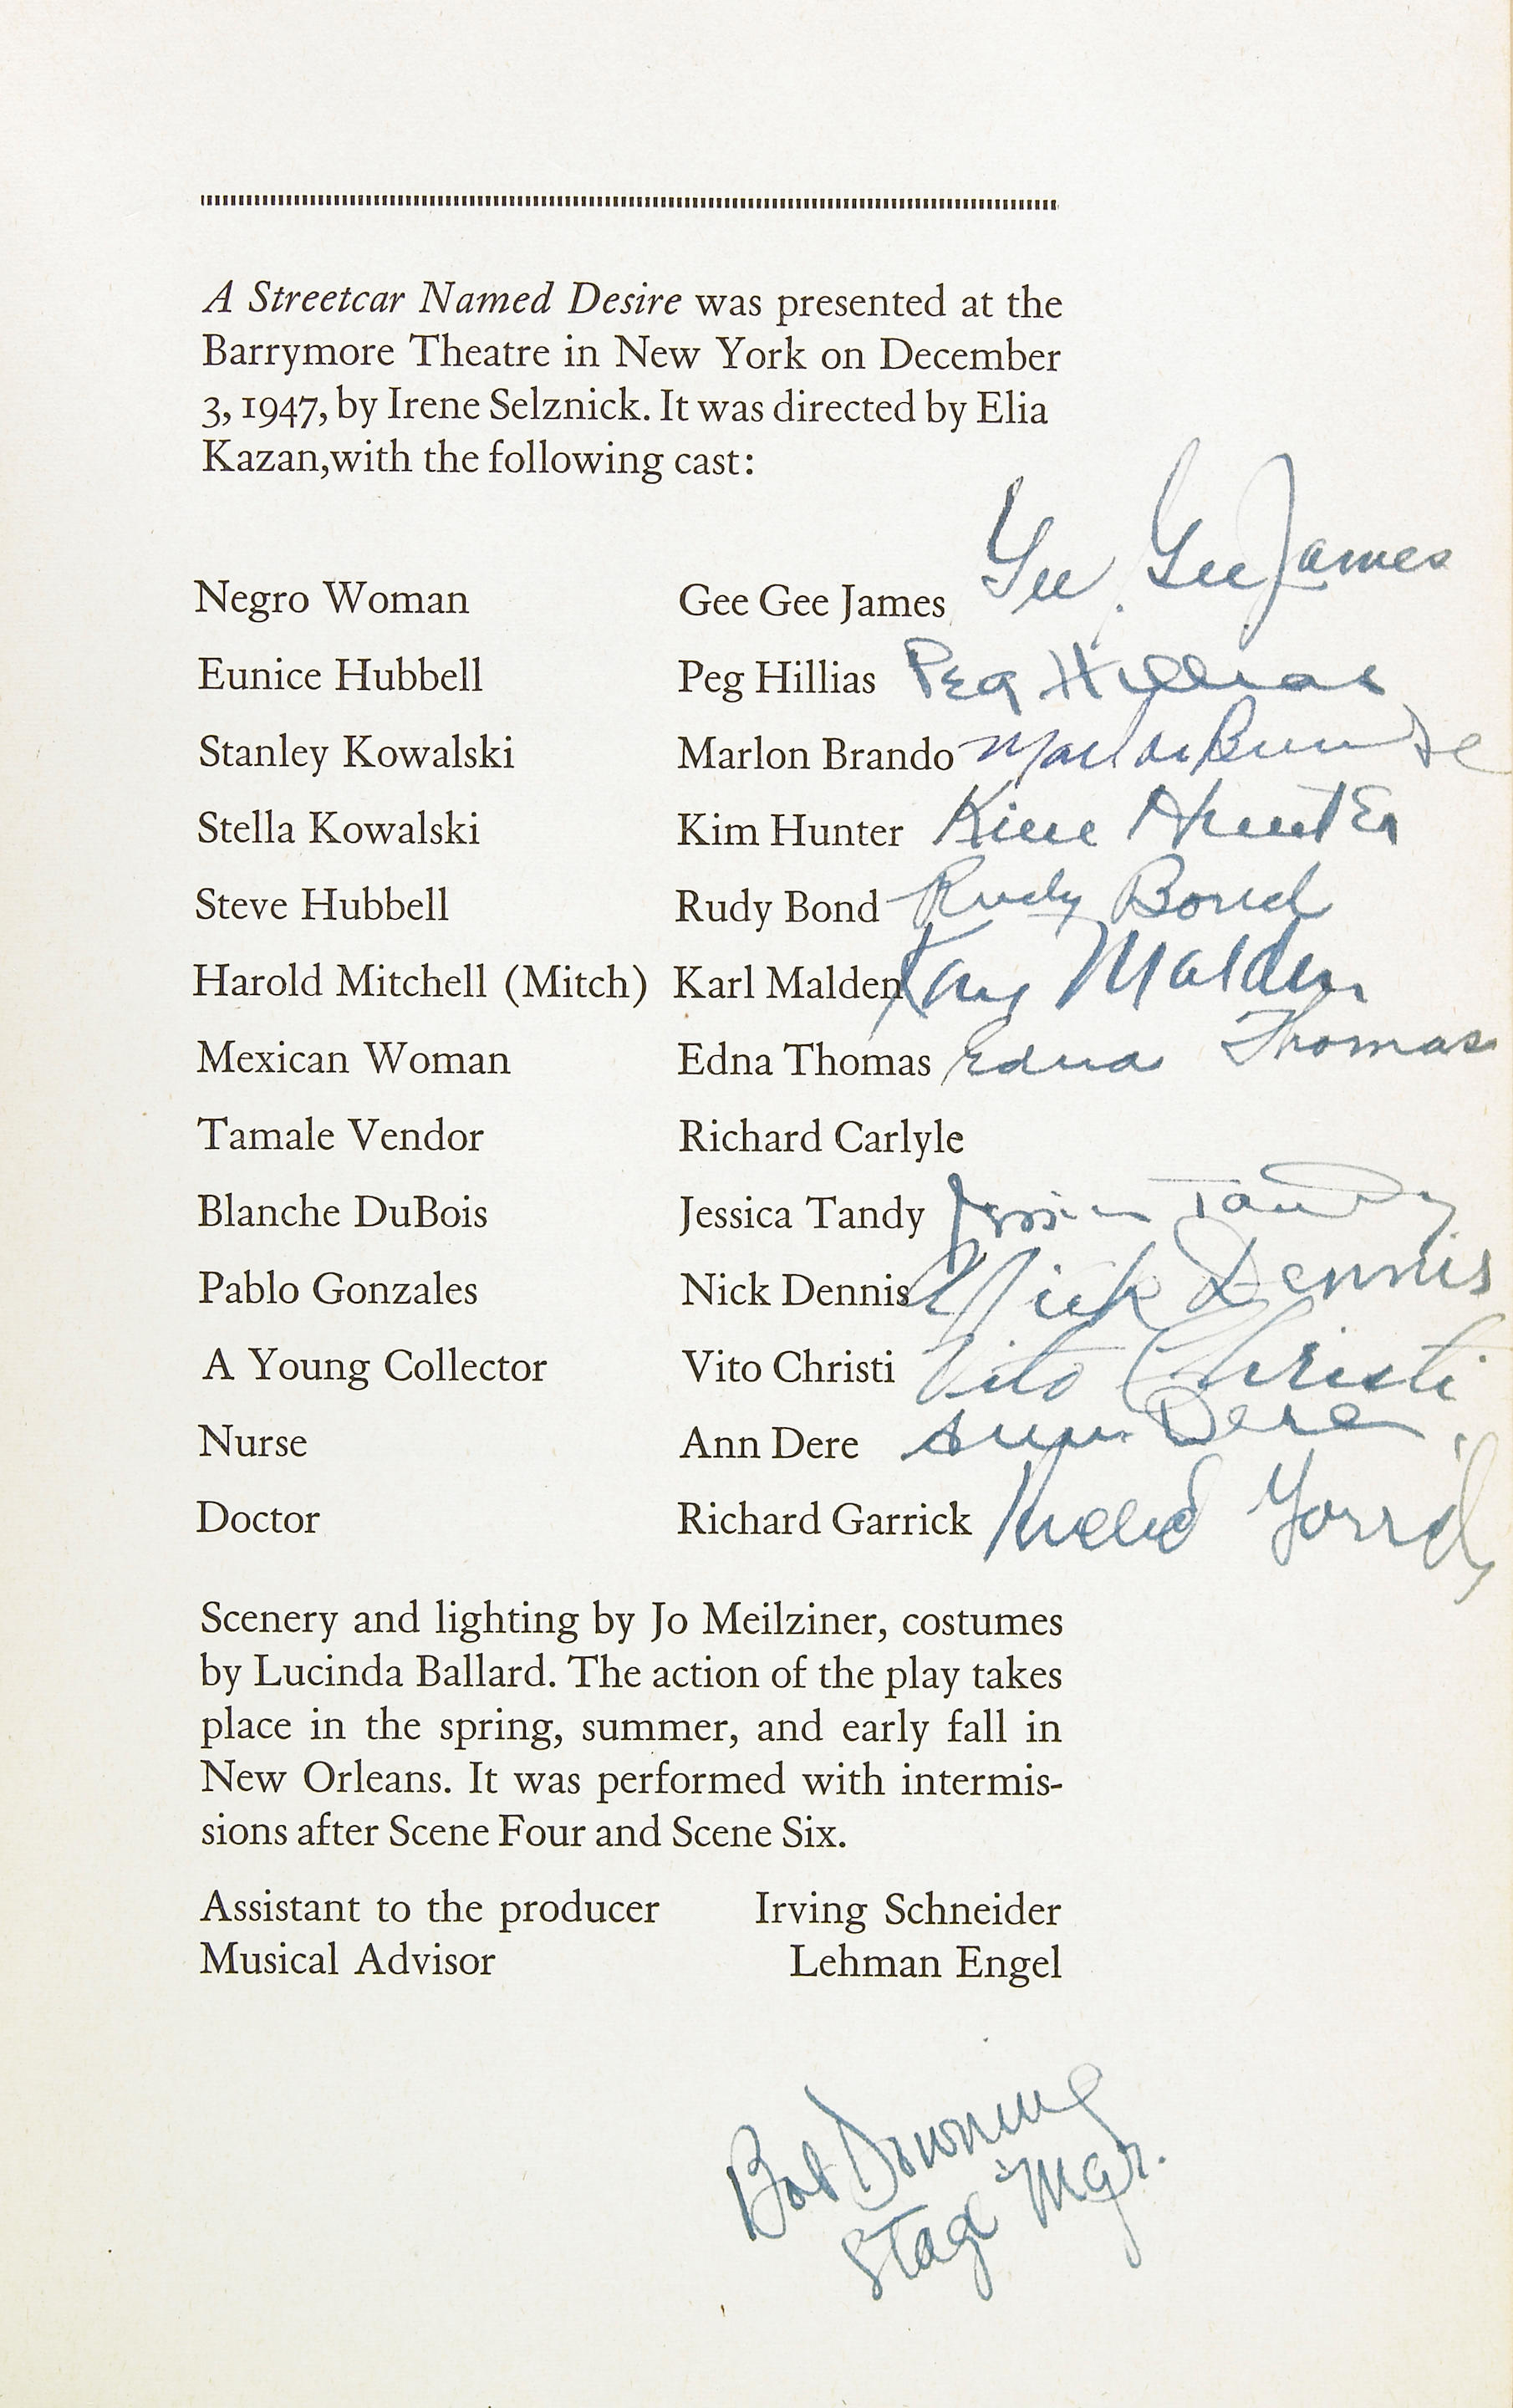 A Streetcar Named Desire was presented at the
Barrymore Theatre in New York on December
3, 1947, by Irene Selznick. It was directed by Elia
Kazan,with the following cast:
Negro Woman Gee Gee James Gee Gee James
Eunice Hubbell Peg Hillias Peg Hillias
Stanley Kowalski Marlon Brando Marlon Brando
Stella Kowalski Kim Hunter Kim Hunter
Steve Hubbell Rudy Bond Rudy Bond
Harold Mitchell (Mitch) Karl Malden Karl Malden
Mexican Woman Edna Thomas Edna Thomas
Tamale Vendor Richard Carlyle
Blanche DuBois Jessica Tandy Jessica Tandy
Pablo Gonzales Nick Dennis Nick Dennis
A Young Collector Vito Christi Vito Christi
Nurse Ann Dere Ann Dere
Doctor Richard Garrick
Scenery and lighting by Jo Meilziner, costumes
by Lucinda Ballard. The action of the play takes
place in the spring, summer, and early fall in
New Orleans. It was performed with intermis-
sions after Scene Four and Scene Six.
Assistant to the producer Irving Schneider
Musical Advisor Lehman Engel
Bob Downing
Stage Mgr.